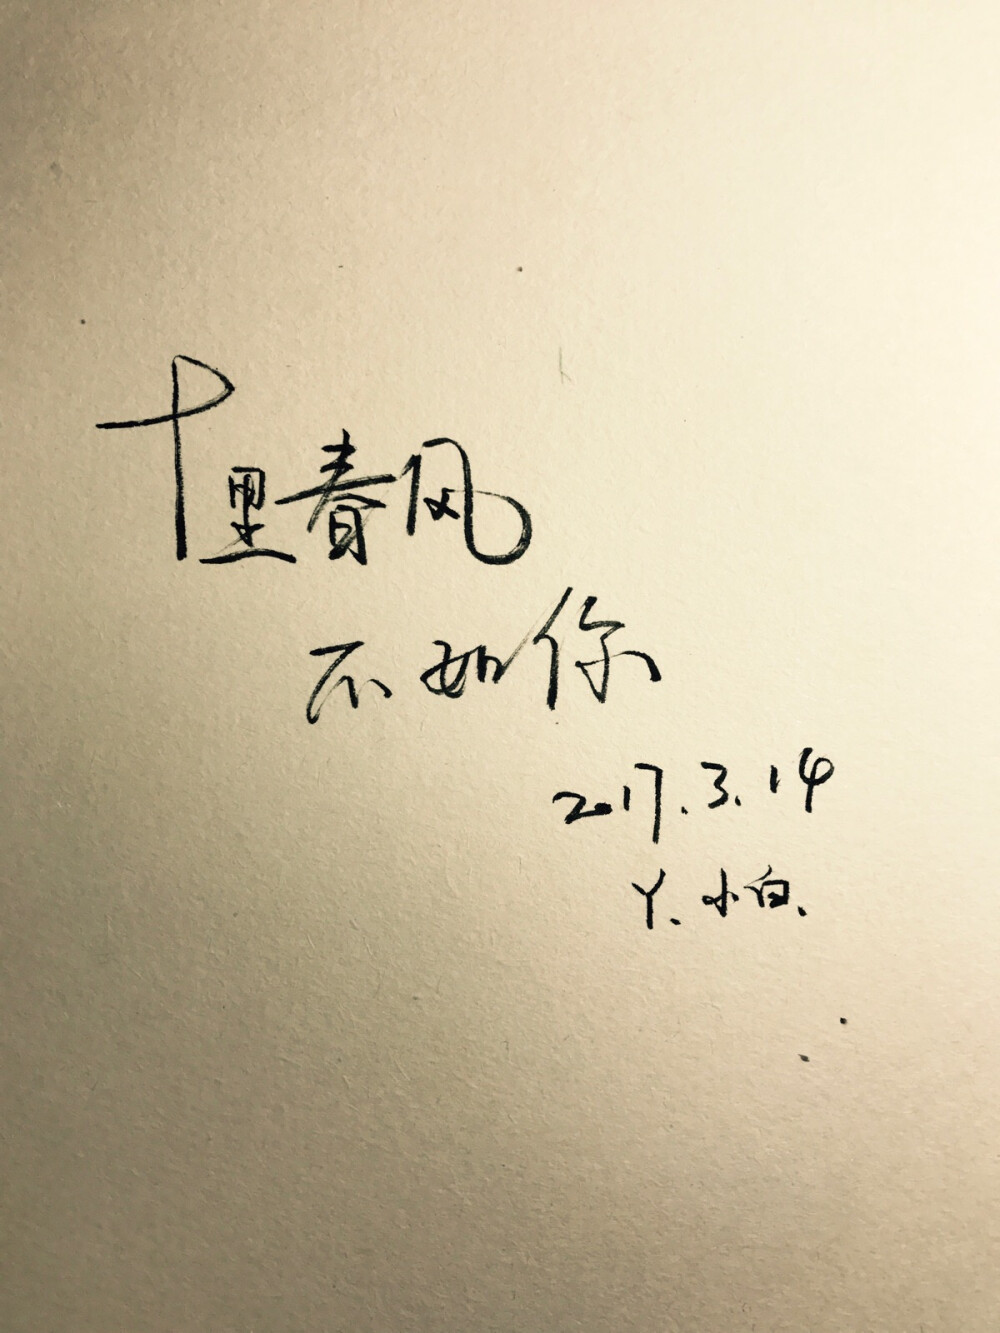 十里春风
不如你
2017.3.14
丫、小白、